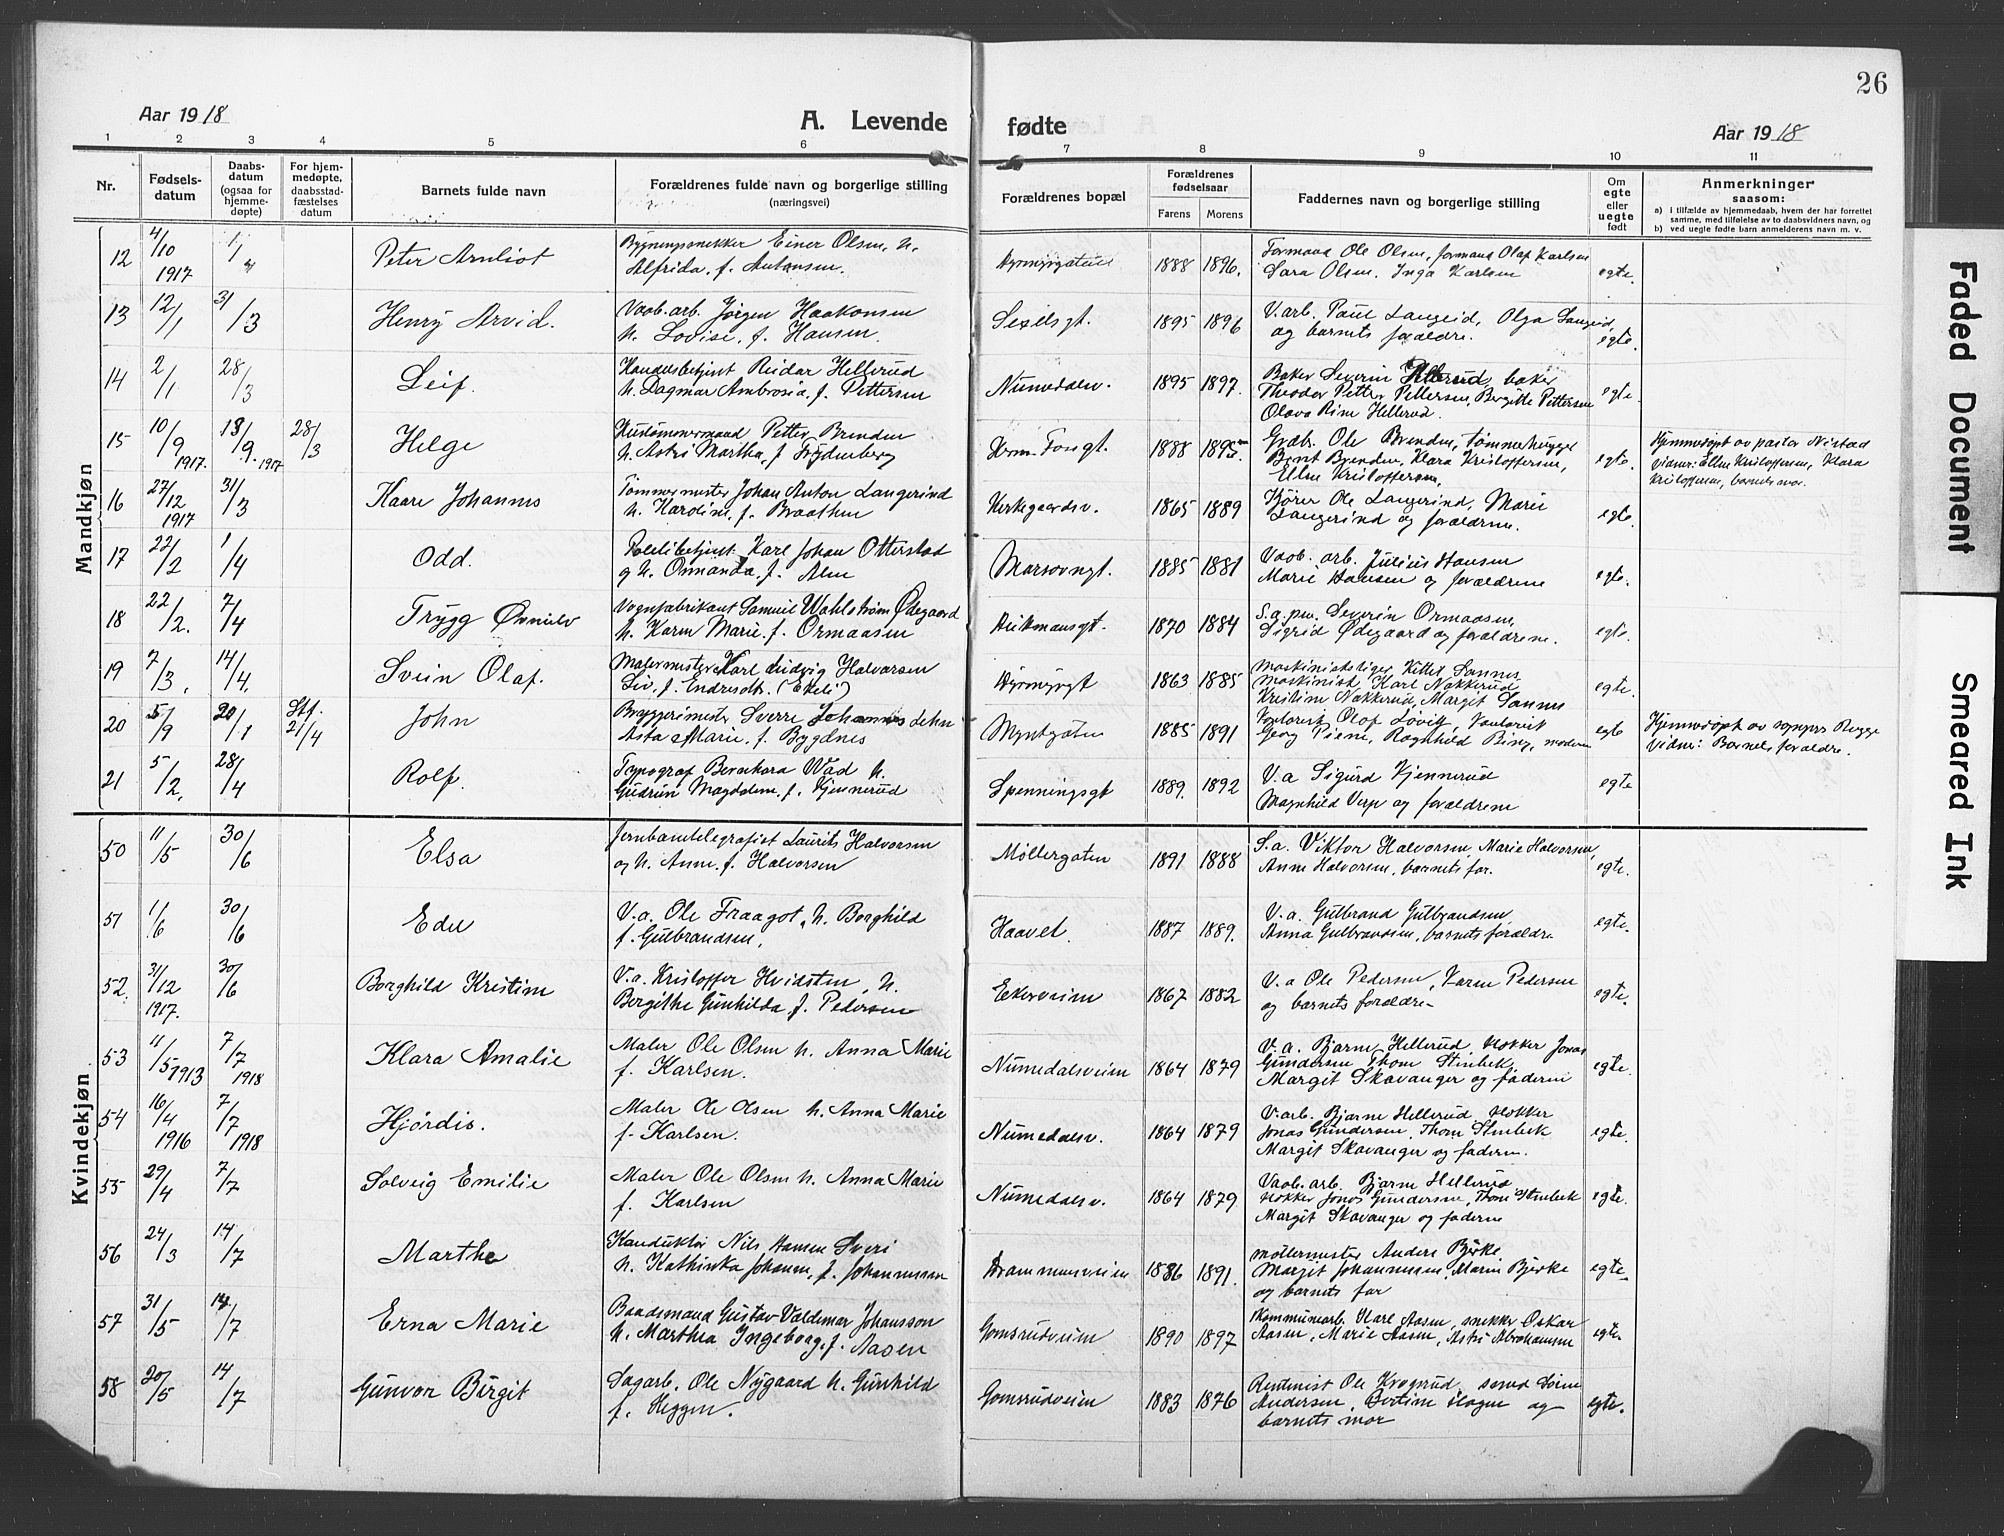 26
Aar 1918
A. Levende
fødte
Aar 1918
1 2 3 4 5 6 7 8 9 10 11
Nr.
Fødsels-
datum
Daabs-
datum
(ogsaa for
hjemme-
døpte)
For hjem-
medøpte,
daabsstad-
fæstelses
datum
Barnets fulde navn
Forældrenes fulde navn og borgerlige stilling
(næringsvei)
Forældrenes bopæl
Forældrenes
fødselsaar
Farens Morens
Faddernes navn og borgerlige stilling
Om
egte
eller
uegte
født
Anmerkninger
saasom:
a) i tilfælde av hjemmedaab, hvem der har forrettet
samme, med tilføielse av to daabsvidners navn, og
b) ved uegte fødte barn anmelderens navn m. v.
Mandkjøn
12 4/10 1917 1/4 Peter Arnliot
Bygningssnekker Einer Olsen, h.
Alfrida, f. Antonsen.
1888 1896.
Formand Ole Olsen, formand Olaf Karlsen
Sara Olsen, Inga Karlsen
egte.
13 12/1 31/3 Henry Arvid.
Vaab. arb. Jørgen Haakonsen
h. Lovise, f. Hansen.
Sexesgt. 1895 1896
V. arb. Paul Langeid, Olga Langeid,
og barnets forældre.
egte.
14 2/1 28/3 Leif.
Handelsbetjent Reidar Hellerud
h. Dagmar Ambrosia, f. Pettersen
Numedalsv. 1895 1897.
Baker Severin Hellerud, baker
Theodor Petter Pettersen, Bergitte Pettersen
Olava Rine Hellerud.
egte.
15 10/9 1917. 13/9. 1917 28/3 Helge
Kustømmermand Petter Brenden
h. Astri Martha, f. Frydenberg
Herm. Fossgt. 1888 1895
Grub. Ole Brenden, tømmerhugger
Bernt Brenden, Klara Kristoffersen,
Ellen Kristoffersen,
egte.
Hjemmedøpt av pastor Nistad
Vidner: Ellen Kristoffersen, Klara
Kristoffersen, barnets mor.
16 27/12 1917 31/3 Kaare Johannes
Tømmermester Johan Anton Langerind
h. Karoline, f. Braathen
Kirkegaardsv. 1865 1889
Kjører Ole Langerind, Marie
Langerind og forældrene.
egte.
17 22/2 1/4 Odd.
Politibetjent Karl Johan Otterstad
og h. Ormanda, f. Alm
1885 1881
Vaab. arb. Julius Hansen
Marie Hansen og forældrene
egte.
18 22/2. 7/4 Trygg
Vognfabrikant Samuel Wahlstrøm Ødegaard
h. Karen Marie, f. Ormaasen
1870 1884
Severin Ormaasen,
Sigrid Ødegaard og forældrene.
egte.
19 7/3. 14/4. Svein Olaf.
Malermester Karl Ludvig Halvorsen
Liv, f. Endresdt. (Ekeli)
1863 1885
Kittel Sannes
Maskinist Karl Nakkerud
Kristine Nakkerud, Margit Sannes
egte.
20 5/9 20/1 Stf. 21/4 John
Bryggerimester Sverre Johannes Lehn
Asta Marie, f. Bygdnes
Myntgaten 1885 1891
Kontorist Olaf Løvik, Kontorist
Georg Piene, Ragnhild Bing, moderen
egte
Hjemmedøpt av
Vidner: Barnets forældre.
21 5/2. 28/4 Rolf.
Typograf Bernhard Wad h.
Gudrun Magdalene, f. Kjennerud
Spenningsgt 1889. 1892
V. a Sigurd Kjennerud
Magnhild Verp og forældrene
egte
Kvindekjøn
50 11/5 30/6 Elsa
Jernbanetelegrafist Laurits Halvorsen
og h. Anne, f. Halvorsen
Møllergaten 1891 1888
S. a. Viktor Halvorsen, Marie Halvorsen,
Anne Halvorsen, barnets far.
egte.
51 1/6 30/6 Edel
V. a. Ole Fraagot, h. Borghild
f. Gulbrandsen,
Haavet. 1887 1889.
V. a. Gulbrand Gulbrandsen,
Anna Gulbrandsen, barnets forældre
egte.
52. 31/12 1917. 30/6 Borghild Kristine
V. a. Kristoffer Hvidsten, h.
Bergithe Gunhilda, f. Pedersen
Ekerveien 1867 1882
V. a Ole Pedersen, Karen Pedersen
og barnets forældre
egte.
53 11/5 1913 7/7 1918 Klara Amalie
Maler Ole Olsen h. Anna Marie
f. Karlsen.
Numedalsveien 1864 1879
V. a. Bjarne Hellerud, Hokker Jonas
Gundersen, Thom Stenbek
Margit Skavanger og faderen
egte.
54 16/4 1916 7/7 1918 Hjørdis.
Maler Ole Olsen h. Anna Marie
f. Karlsen.
Numedalsv. 1864 1879
V. arb. Bjarne Hellerud, Hokker
Jonas Gundersen, Thom Stenbek
Margit Skavanger og faderen.
egte.
55 29/4 7/7 Solveig Emilie
Maler Ole Olsen h. Anna Marie
f. Karlsen
Numedalsv. 1864 1879
Vaab. arb. Bjarne Hellerud
Hokker Jonas Gundersen, Thom Stenbek
Margit Skavanger og faderen
egte.
56 24/3 14/7 Marthe
Konduktør Nils Hansen Sveri
h. Kathinka Johanne, f. Johannessen
Drammensveien 1886 1891.
Møllermester Anders Bjerke,
Margit Johannessen, Marie Bjerke
og barnets far
egte
57 31/5 14/7 Erna Marie
Baadsmand Gustav Valdemar Johansson
h. Marthea Ingeborg, f. Aasen
Gomsrudveien 1890 1897
Kommunearb. Karl Aasen, snekker Oskar
Aasen, Marie Aasen, Astri Abrahamsen
egte.
58 20/5 14/7 Gunvor Birgit
Sagarb. Ole Nygaard h. Gunhild
f. Heggen.
Gomsrudveien 1883 1876
Rentenist Ole Krogsrud, smed Søren
Andersen, Bertine Hagen og
barnets mor
egte.
Faded Document
Smeared Ink